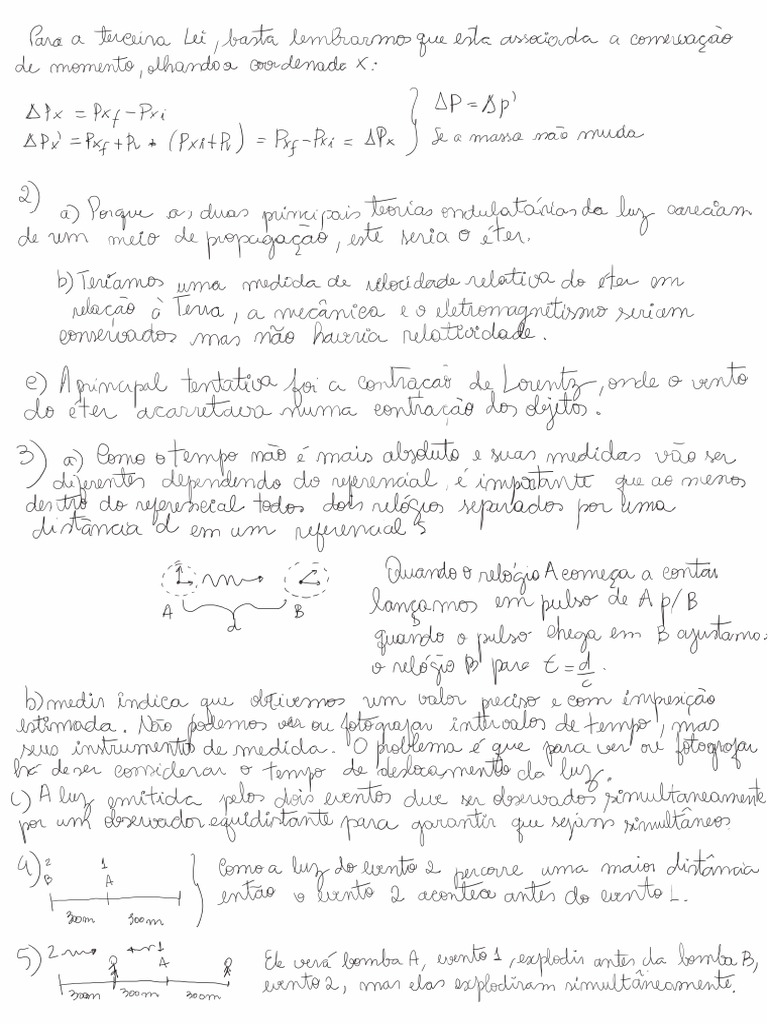 Para a terceira Lei, basta lembrarmos que esta associada a conservação
de momento, olhando a coordenada X:
ΔPx = Pxf - Pxi
ΔPx' = Pxf + Pr - (Pxi + Pr) = Pxf - Pxi = ΔPx
ΔP = Δp'
Se a massa não muda
2)
a) Porque as duas principais teorias ondulatórias da luz careciam
de um meio de propagação, este seria o éter.
b) Teríamos uma medida de velocidade relativa do éter em
relação à Terra, a mecânica e o eletromagnetismo seriam
conservados mas não haveria relatividade.
c) A principal tentativa foi a contração de Lorentz, onde o vento
do éter acarretava numa contração dos objetos.
3) a) Como o tempo não é mais absoluto e suas medidas vão ser
diferentes dependendo do referencial, é importante que ao menos
dentro do referencial todos dois relógios separados por uma
distância d em um referencial S
A B
d
Quando o relógio A começa a contar
lançamos em pulso de A p/ B
quando o pulso chega em B ajustamos
o relógio B para t = d/c.
b) medir indica que obtivemos um valor preciso e com imprecisão
estimada. Não podemos ver ou fotografar intervalos de tempo, mas
seus instrumentos de medida. O problema é que para ver ou fotografar
há de ser considerar o tempo de deslocamento da luz.
c) A luz emitida pelos dois eventos dve ser observados simultaneamente
por um observador equidistante para garantir que sejam simultâneos.
4) 2 1
B A
300m 300m
Como a luz do evento 2 percorre uma maior distância
então o evento 2 acontece antes do evento 1.
5) 2 1
A
300m 300m 300m
Ele verá bomba A, evento 1, explodir antes da bomba B,
evento 2, mas elas explodiram simultâneamente.